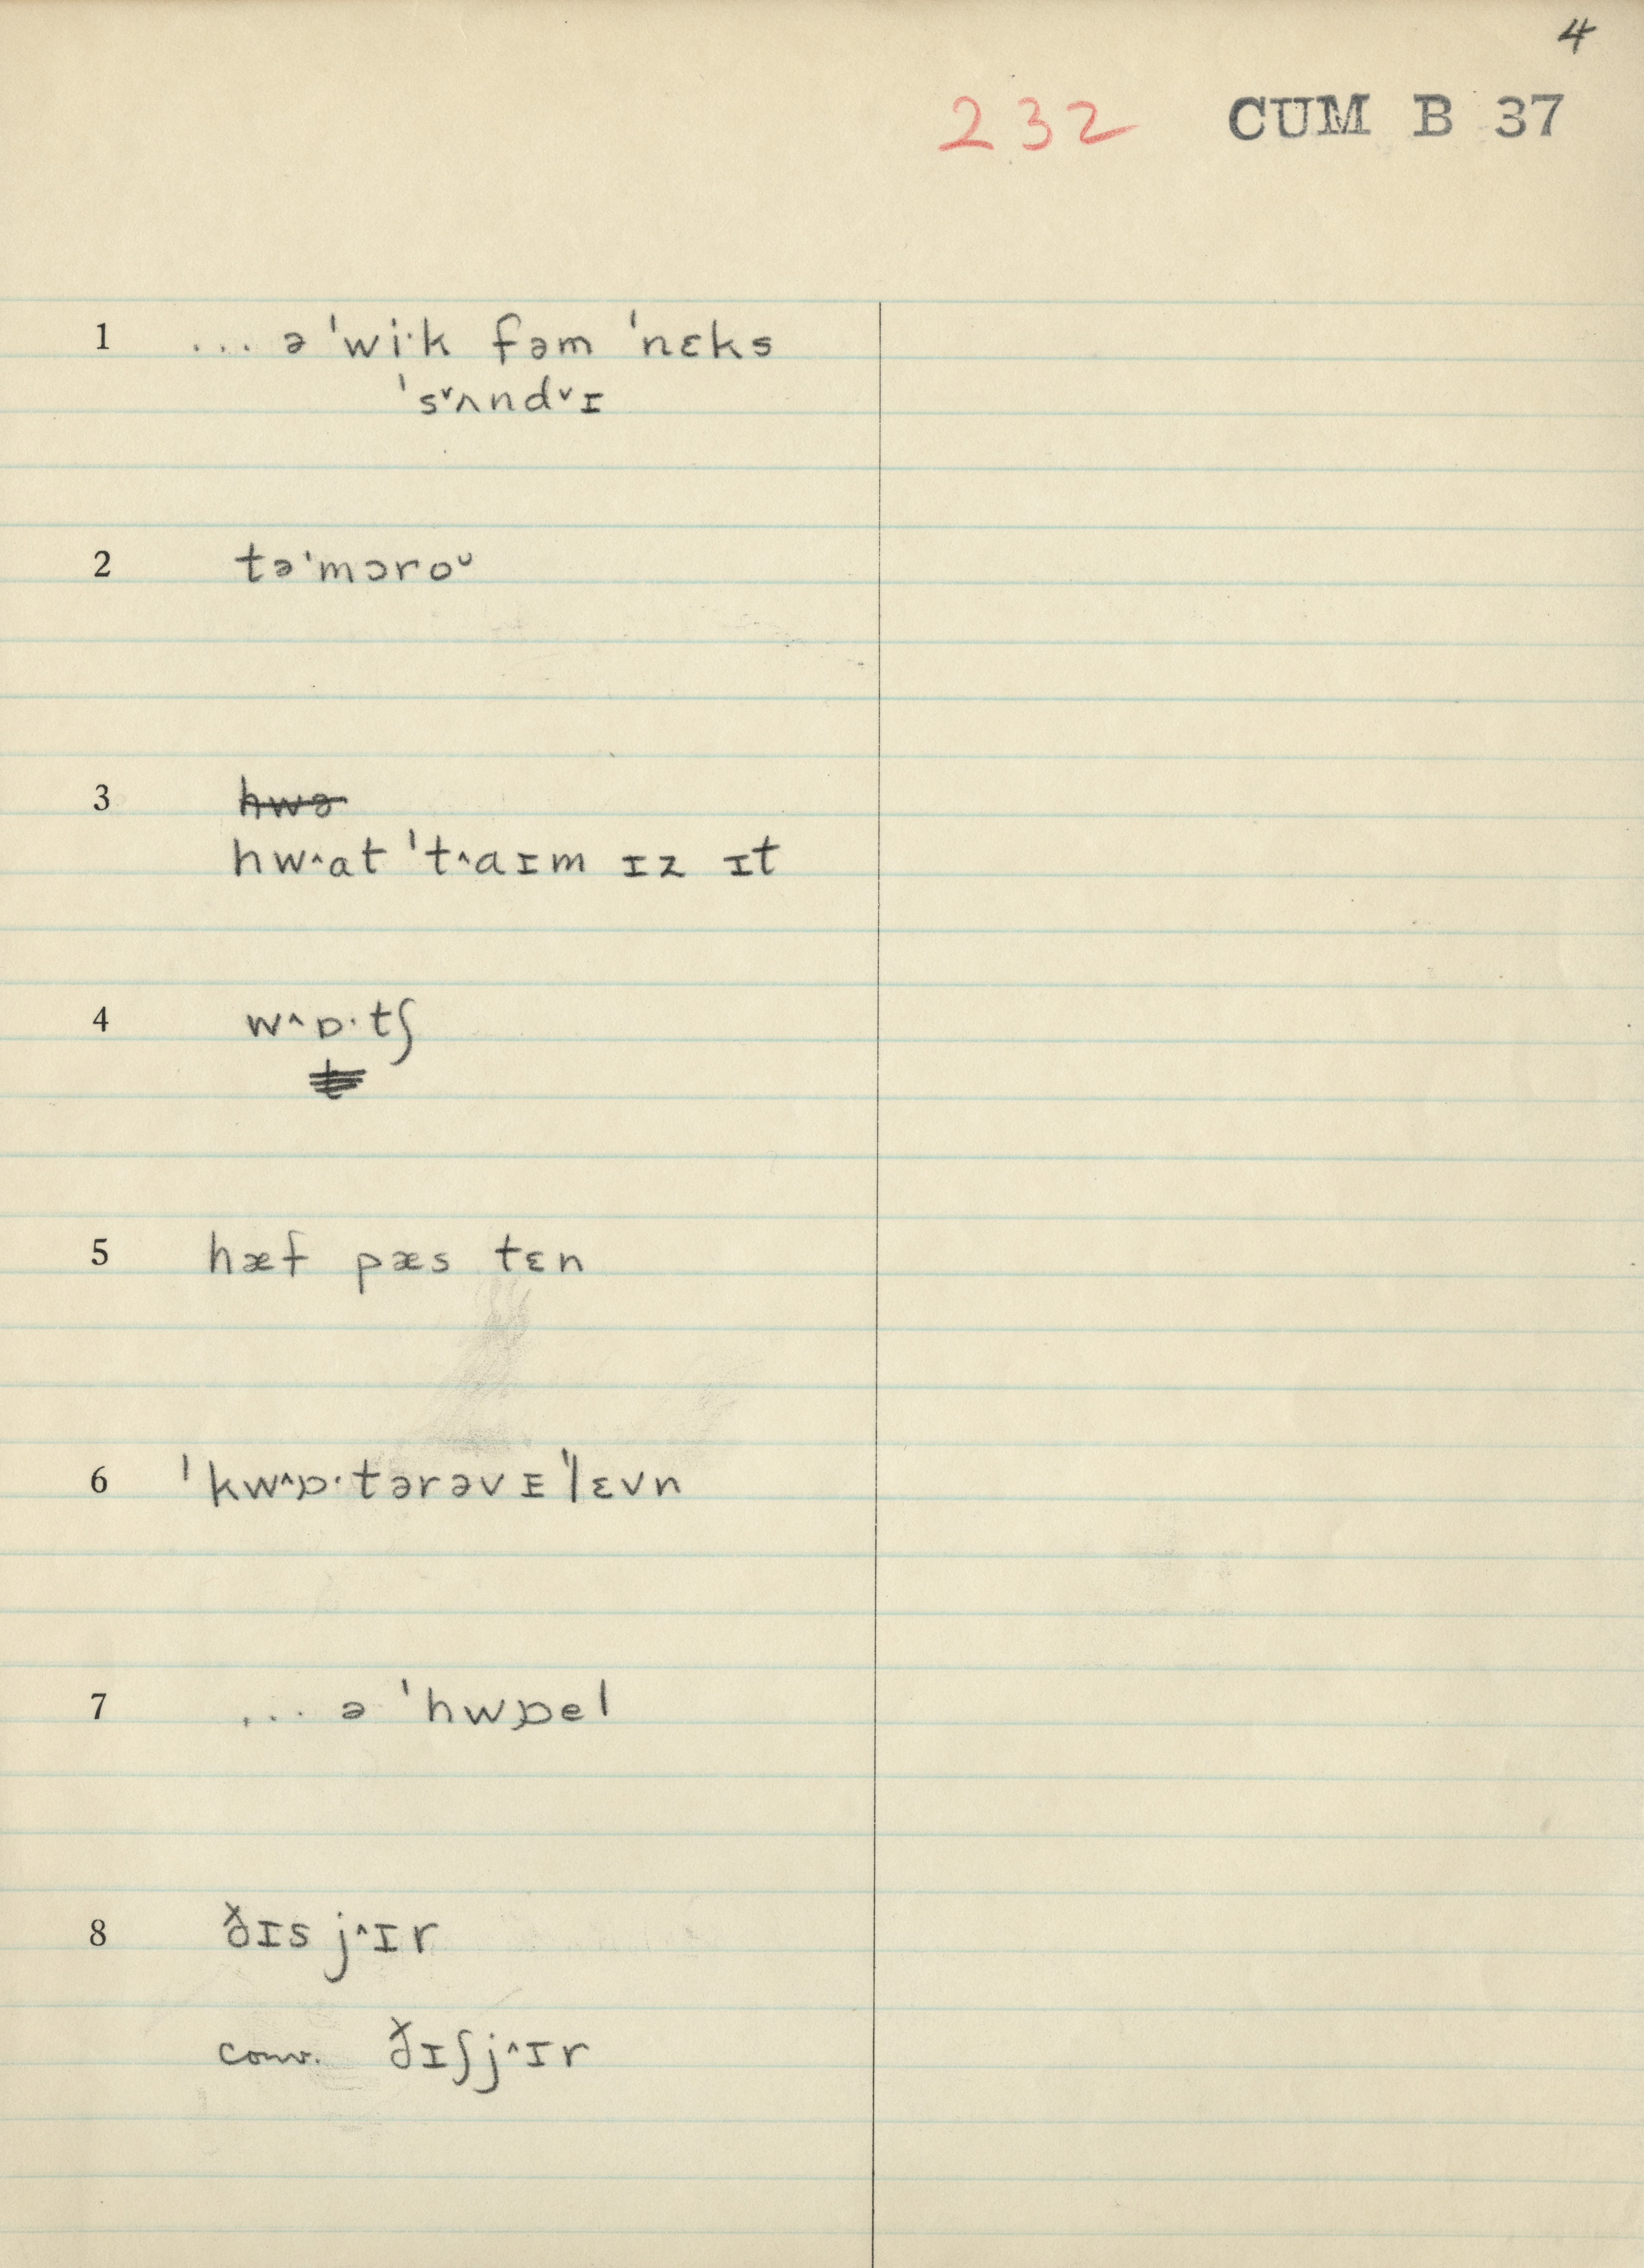 4
232 CUM B 37
1 ... ə 'wi·k fəm 'nɛks
's˅ʌnd˅ɪ
2 tə'mɔroᵁ
3 hwə
hw^at 't^aɪm ɪz ɪt
4 w^ɒ·tʃ
5 hæf pæs tɛn
6 'kw^ɒ·tərəv ɪ'lɛvn
7 ... ə 'hwɒel
8 ðɪs j^ɪr
conv. ðɪʃj^ɪr